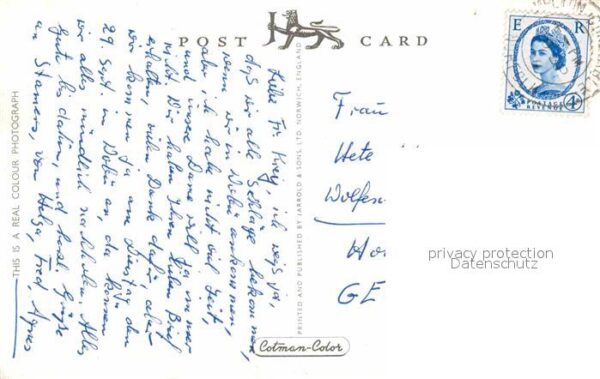 POST CARD
E R
POSTAGE REVENUE
4D
THIS IS A REAL COLOUR PHOTOGRAPH
PRINTED AND PUBLISHED BY JARROLD & SONS, LTD. NORWICH, ENGLAND
Liebe Fr. Krey, ich weiß ja,
daß wir alle Schläge bekommen,
wenn wir in Dobü ankommen,
aber ich habe nicht viel Zeit,
und unsere Dame will ja immer
nicht. Wir haben Ihren lieben Brief
erhalten, vielen Dank dafür, aber
wir kommen ja am Dienstag den
29. Sept. in Dobü an, da können
wir alles mündlich nachholen. Alles
Gute bis dahin, und herzl. Grüße
an Stamers, von Helga, Fred Agnes
Frau
Hete
Wolfen
GE
Cotman-Color
privacy protection
Datenschutz